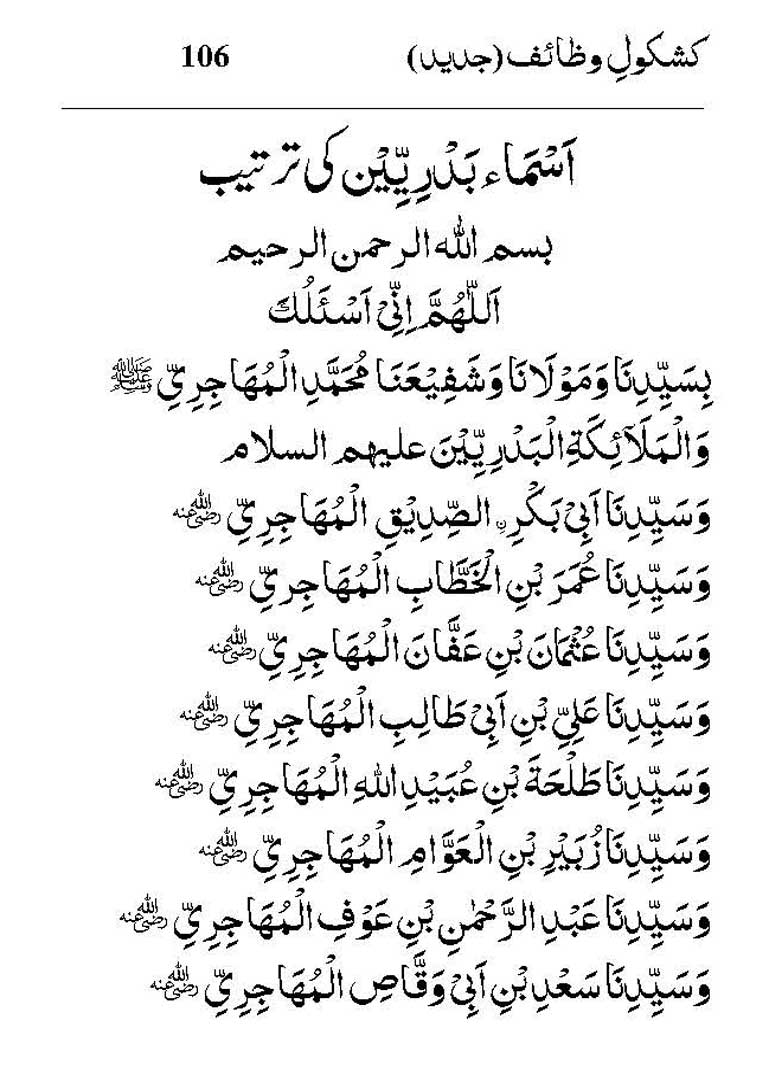 کشکولِ وظائف (جدید) 106
اَسْمَاء بَدْرِیِّیْن کی ترتیب
بسم اللہ الرحمن الرحیم
اَللّٰهُمَّ اِنِّیْ اَسْئَلُكَ
بِسَیِّدِنَا وَمَوْلَانَا وَشَفِیْعَنَا مُحَمَّدِ الْمُهَاجِرِیِّ ﷺ
وَالْمَلَآئِكَةِ الْبَدْرِیِّیْنَ علیهم السلام
وَسَیِّدِنَا اَبِیْ بَكْرِ نِ الصِّدِیْقِ الْمُهَاجِرِیِّ رضی اللہ عنه
وَسَیِّدِنَا عُمَرَ بْنِ الْخَطَّابِ الْمُهَاجِرِیِّ رضی اللہ عنه
وَسَیِّدِنَا عُثْمَانَ بْنِ عَفَّانَ الْمُهَاجِرِیِّ رضی اللہ عنه
وَسَیِّدِنَا عَلِیِّ بْنِ اَبِیْ طَالِبِ الْمُهَاجِرِیِّ رضی اللہ عنه
وَسَیِّدِنَا طَلْحَةَ بْنِ عُبَیْدِ اللهِ الْمُهَاجِرِیِّ رضی اللہ عنه
وَسَیِّدِنَا زُبَیْرِ بْنِ الْعَوَّامِ الْمُهَاجِرِیِّ رضی اللہ عنه
وَسَیِّدِنَا عَبْدِ الرَّحْمٰنِ بْنِ عَوْفِ الْمُهَاجِرِیِّ رضی اللہ عنه
وَسَیِّدِنَا سَعْدِ بْنِ اَبِیْ وَقَّاصِ الْمُهَاجِرِیِّ رضی اللہ عنه